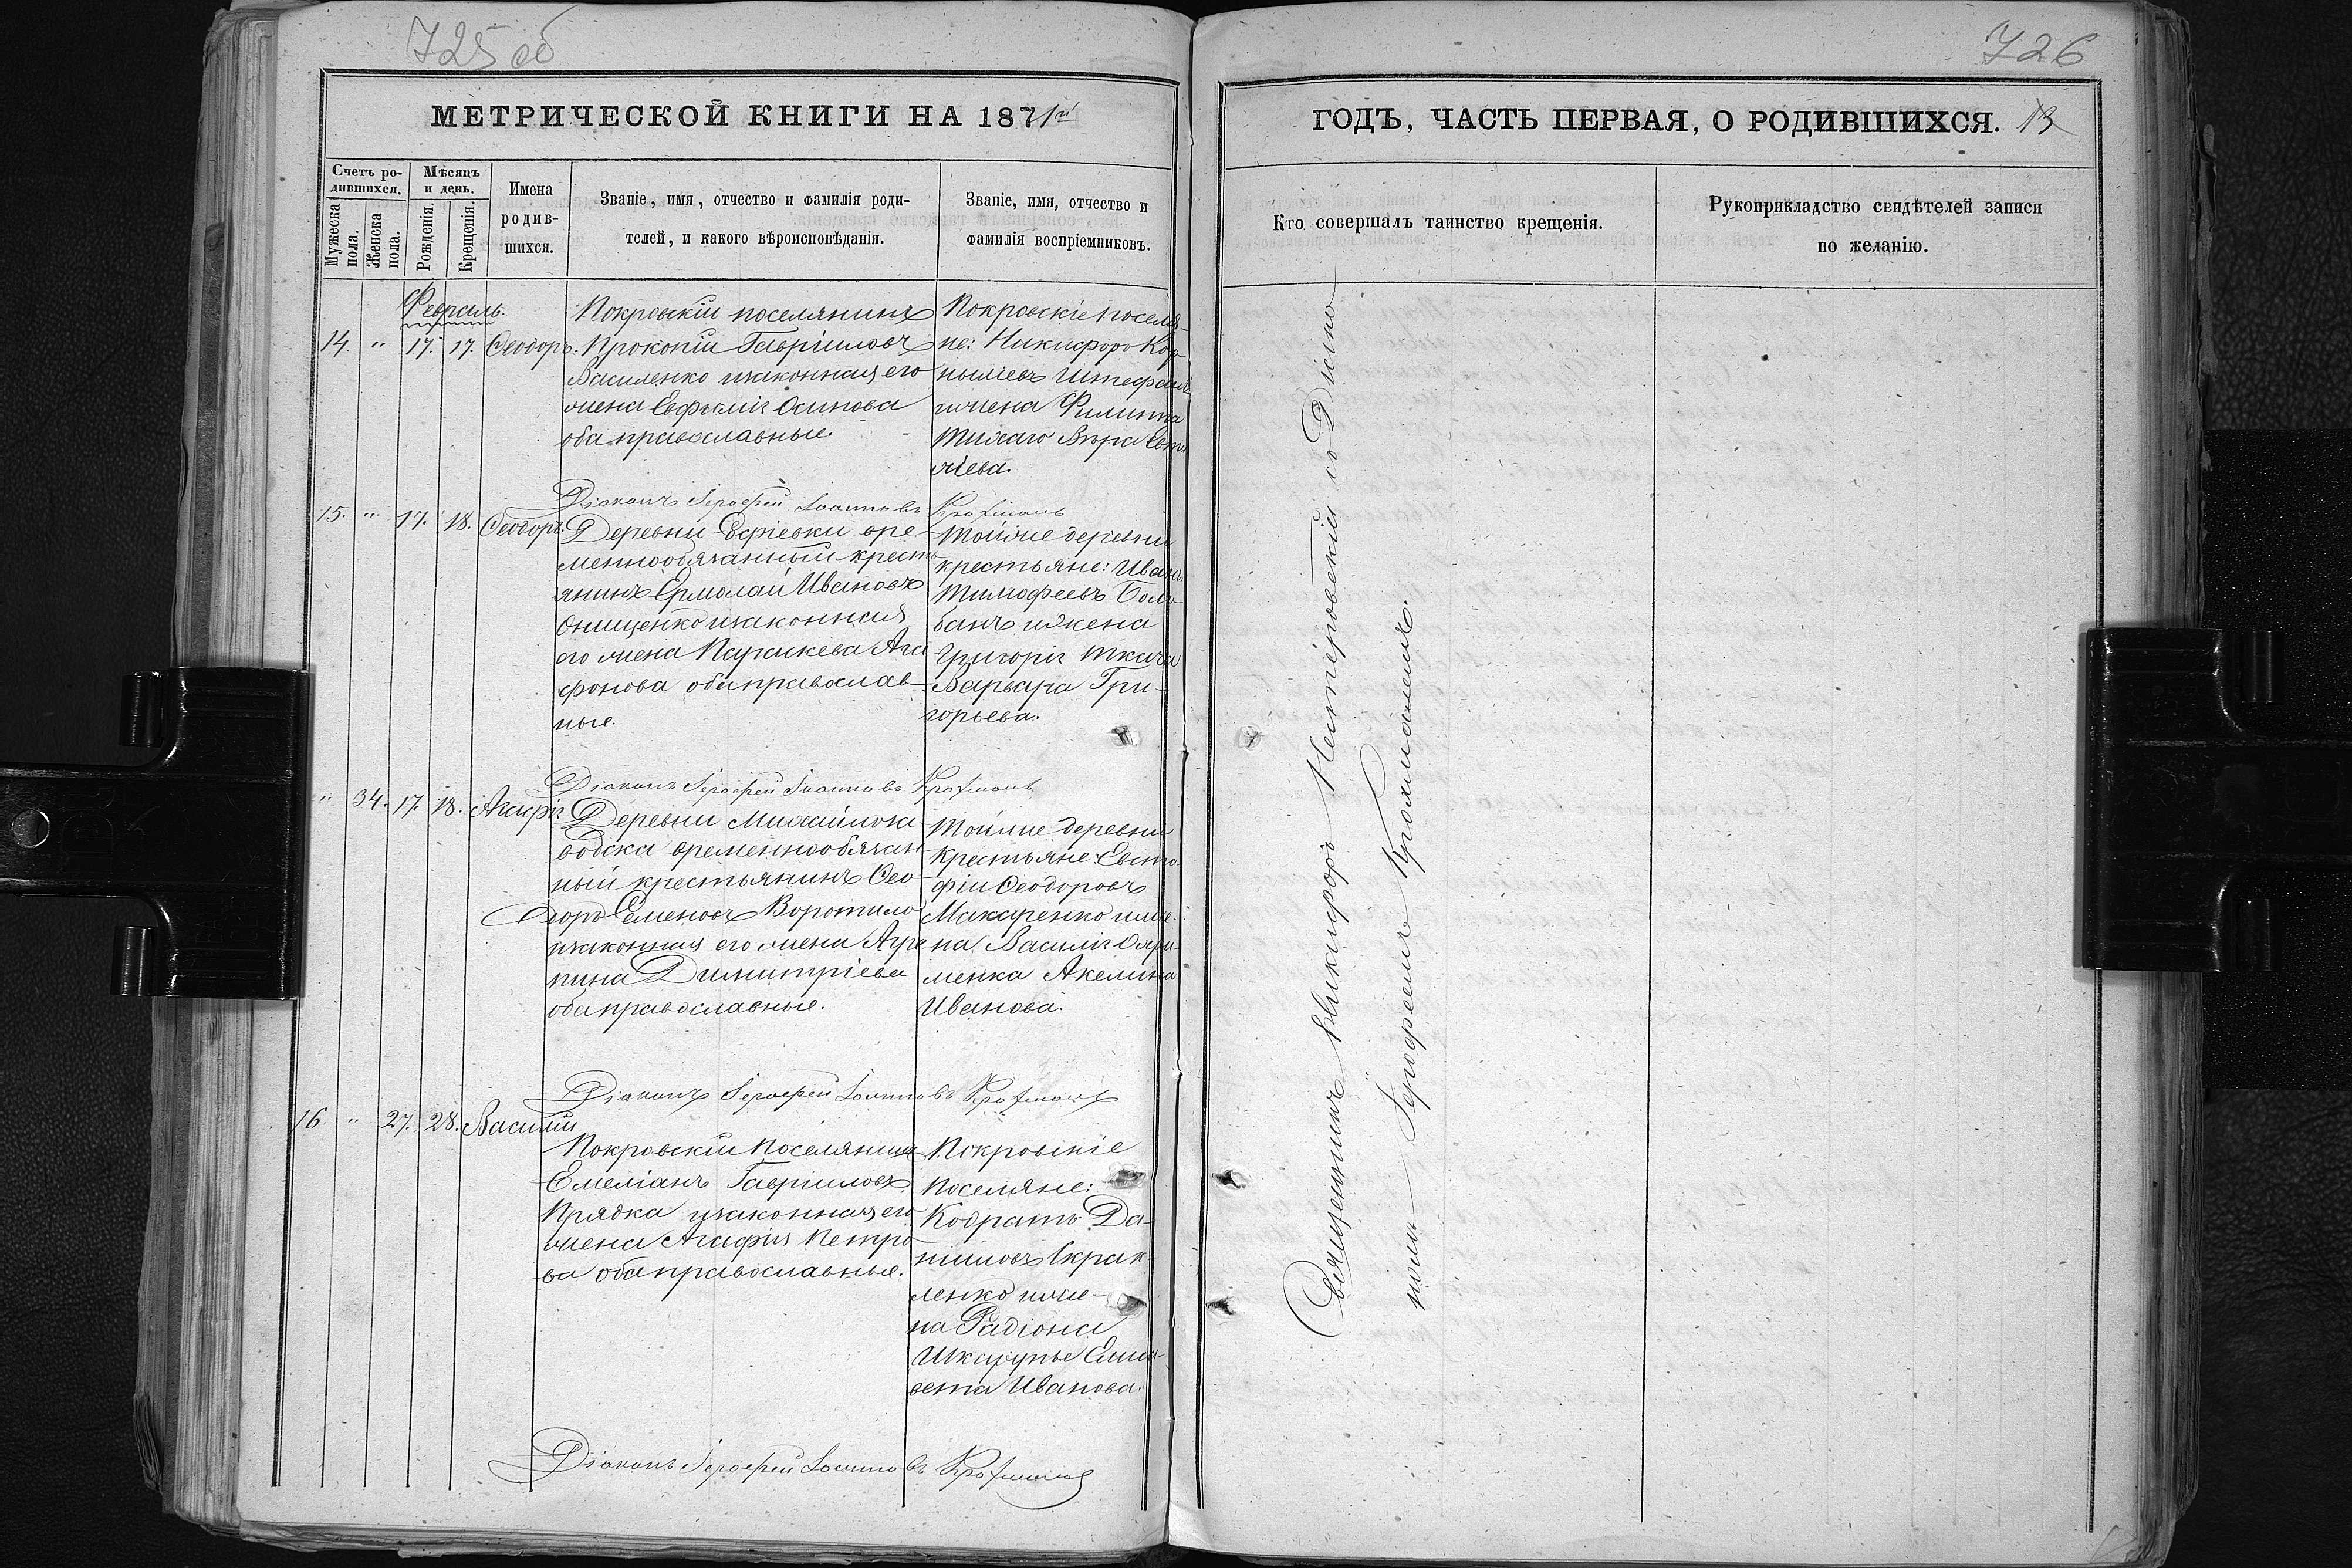 725 об
МЕТРИЧЕСКОЙ КНИГИ НА 1871й
Счетъ ро-
дившихся.
Мужеска
пола.
Женска
пола.
Мѣсяцъ
и день.
Рожденія.
Крещенія.
Имена
родив-
шихся.
Званіе, имя, отчество и фамилія роди-
телей, и какого вѣроисповѣданія.
Званіе, имя, отчество и
фамилія воспріемниковъ.
Февраль.
14. " 17. 17. Ѳеодоръ.
Покровскій поселянинъ
Прокопій Гавріиловъ
Василенко изаконная его
жена Евфимія Осипова
оба православные.
Покровскіе поселя-
не: Никифоръ Кор
ныліевъ Штефанъ
ижена Филиппа
Тихаго Вѣра Евти
хіева.
Діаконъ Іероѳей Іоанновъ Крохмаль
15. " 17. 18. Ѳеодоръ.
Деревни Софіевки вре-
меннообязанный кресть
янинъ Ермолай Ивановъ
Онищенко изаконная
его жена Параскева Ага
фонова оба православ-
ные.
Тойже деревни
крестьяне: Иванъ
Тимофеевъ
банъ ижена
Григорія Ткача
Варвара Гри-
горьева.
Діаконъ Іероѳей Іоанновъ Крохмаль
" 34. 17. 18. Агафія
Деревни
временнообязан
ный крестьянинъ Ѳео-
доръ Семеновъ Воротило
изаконная его жена Агре
пина Димитріева
оба православные.
Тойже деревни
Крестьяне: Евста
фій Ѳеодоровъ
Макаренко иже-
на Василія
менка Акелина
Иванова.
Діаконъ Іероѳей Іоанновъ Крохмаль
16 " 27. 28. Василій
Покровскій Поселянинъ
Емеліанъ Гавріиловъ
Прядка изаконная его
жена Агафія Петро
ва оба православные.
Покровскіе
Поселяне:
Кодратъ Да-
ниловъ
ленко иже-
на Радіона
Шкарупы Елиса-
вета Иванова.
Діаконъ Іероѳей Іоанновъ Крохмаль
726
ГОДЪ, ЧАСТЬ ПЕРВАЯ, О РОДИВШИХСЯ. 13
Кто совершалъ таинство крещенія.
Рукоприкладство свидѣтелей записи
по желанію.
Священникъ Никифоръ Нестеровскій съ Діако-
номъ Іероѳеемъ Крохмалемъ.